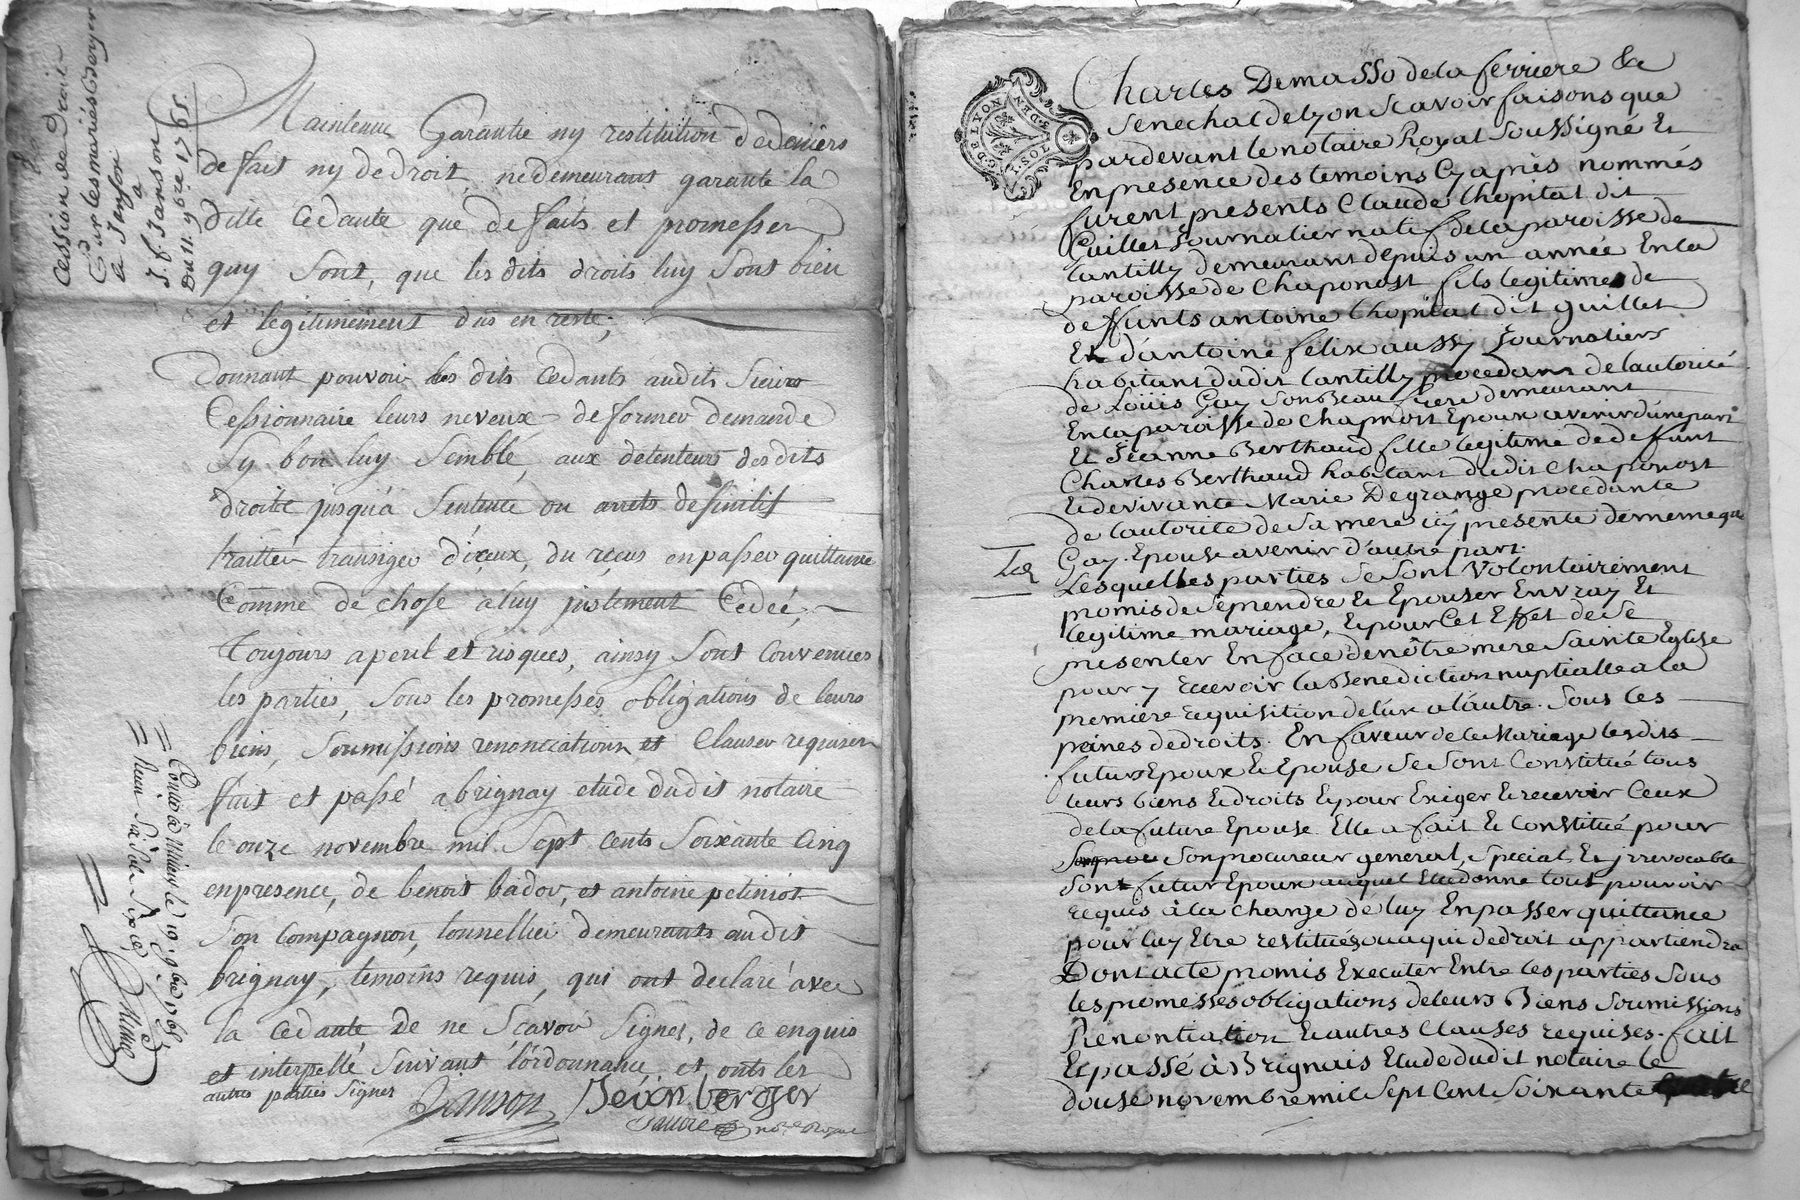 Cession de Droit
Sur les mariés Berger
et Jenson
a
J. f. Janson
Du 11. 9bre 1765
Maintenue Garantie ny restitution de deniers
de fait ny de droit, ne demeurant garante la
ditte Cedante que de faits et promesses
quy sont, que les dits droits luy sont bien
et legitimement dus en reste,
Donnant pouvoir les dits Cedants audit Sieur
Cessionnaire leurs neveux de former demande
Sy bon luy semble, aux detenteurs desdits
droits jusqu'a Sentence ou arrets definitif
traitter transiger d'iceux, du reçus en passer quittance
Comme de chose a luy justement Cedée,
Toujours a peril et risques, ainsy sont Convenues
les parties, sous les promesses obligations de leurs
biens, Soumissions renonciations et Clauses requises
fait et passé a brignay etude dudit notaire
le onze novembre mil Sept Cents Soixante Cinq
en presence, de benoit badou, et antoine petiniot
Son Compagnon, tonnellier demeurants audit
brignay, temoins requis, qui ont declaré avec
la Cedante de ne Scavoir Signer, de ce enquis
et interpellé suivant l'ordonnance, et onts les
autres parties Signes
Janson Jean berger
notre Royal
le 19 9bre 1765
Reçu Six Sols Six
CDELYON
I·SOL
Charles Demasso de la ferriere &c
Senechal de lyon Scavoir faisons que
pardevant le notaire Royal Soussigné Et
En presence des temoins Cy après nommés
furent presents Claude Chopitat dit
Guillet Journalier natif de la paroisse de
Cantilly demeurant depuis un année En la
paroisse de Chaponost fils legitime de
deffunts antoine Chopitat dit guillet
Et d'antoine felix aussy Journaliers
habitant dudit Cantilly procedant de l'autorité
de Loüis Gay Son beau frere demeurant
En la paroisse de Chaponost Epoux avenir d'une part
Et Jeanne Berthaud fille legitime de deffunt
Charles Berthaud habitant dudit Chaponost
Et de vivante Marie Degrange procedante
de l'autorité de Sa mere icy presente de meme que
Gay. Epouse avenir d'autre part.
Lesquelles parties Se Sont Volontairement
promis de Se prendre Et Epouser En vray Et
legitime mariage, Et pour Cet Effet de Se
presenter En face de nôtre mere Sainte Eglise
pour y recevoir la Benediction nuptialle a la
premiere requisition de l'un a l'autre. Sous les
peines de droits. En faveur de Ce Mariage lesdits
futurs Epoux Et Epouse Se Sont Constitué tous
leurs biens Et droits Et pour Exiger Et recevoir Ceux
de la future Epouse Elle a fait Et Constitué pour
Son procureur general, Special Et jrrevocable
Sont futur Epoux auquel Elle donne tout pouvoir
requis à la Charge de luy En passer quittance
pour luy Etre restitués ou a qui de droit appartiendra
Dont acte promis Executer Entre les parties Sous
les promesses obligations de leurs Biens Soumissions
Renontiation Et autres Clauses requises. fait
Et passé à Brignais Etude dudit notaire le
douse novembre mil Sept Cent Soixante